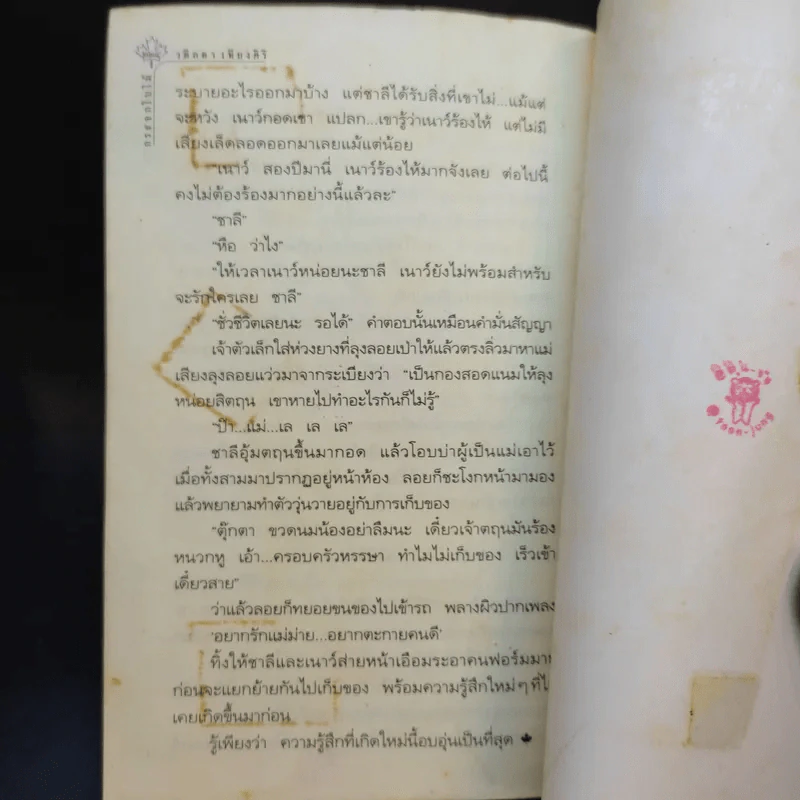 กรงดอกไม้ไฟ
ระบายอะไรออกมาบ้าง แต่ชาลีได้รับสิ่งที่เขาไม่...แม้แต่
จะหวัง เนาว์กอดเขา แปลก...เขารู้ว่าเนาว์ร้องไห้ แต่ไม่มี
เสียงเล็ดลอดออกมาเลยแม้แต่น้อย
"เนาว์ สองปีมานี่ เนาว์ร้องไห้มากจังเลย ต่อไปนี้
คงไม่ต้องร้องมากอย่างนี้แล้วละ"
"ชาลี"
"หือ ว่าไง"
"ให้เวลาเนาว์หน่อยนะชาลี เนาว์ยังไม่พร้อมสำหรับ
จะรักใครเลย ชาลี"
"ชั่วชีวิตเลยนะ รอได้" คำตอบนั้นเหมือนคำมั่นสัญญา
เจ้าตัวเล็กใส่ห่วงยางที่ลุงลอยเป่าให้แล้วตรงลิ่วมาหาแม่
เสียงลุงลอยแว่วมาจากระเบียงว่า "เป็นกองสอดแนมให้ลุง
หน่อยสิตฤน เขาหายไปทำอะไรกันก็ไม่รู้"
"ป๊า...แม่...เล เล เล"
ชาลีอุ้มตฤนขึ้นมากอด แล้วโอบบ่าผู้เป็นแม่เอาไว้
เมื่อทั้งสามมาปรากฏอยู่หน้าห้อง ลอยก็ชะโงกหน้ามามอง
แล้วพยายามทำตัววุ่นวายอยู่กับการเก็บของ
"ตุ๊กตา ขวดนมน้องอย่าลืมนะ เดี๋ยวเจ้าตฤนมันร้อง
หนวกหู เอ้า...ครอบครัวหรรษา ทำไมไม่เก็บของ เร็วเข้า
เดี๋ยวสาย"
ว่าแล้วลอยก็ทยอยขนของไปเข้ารถ พลางผิวปากเพลง
'อยากรักแม่ม่าย...อยากตะกายคนดี'
ทิ้งให้ชาลีและเนาว์ส่ายหน้าเอือมระอาคนฟอร์มมาก
ก่อนจะแยกย้ายกันไปเก็บของ พร้อมความรู้สึกใหม่ๆ ที่ไม่
เคยเกิดขึ้นมาก่อน
รู้เพียงว่า ความรู้สึกที่เกิดใหม่นี้อบอุ่นเป็นที่สุด